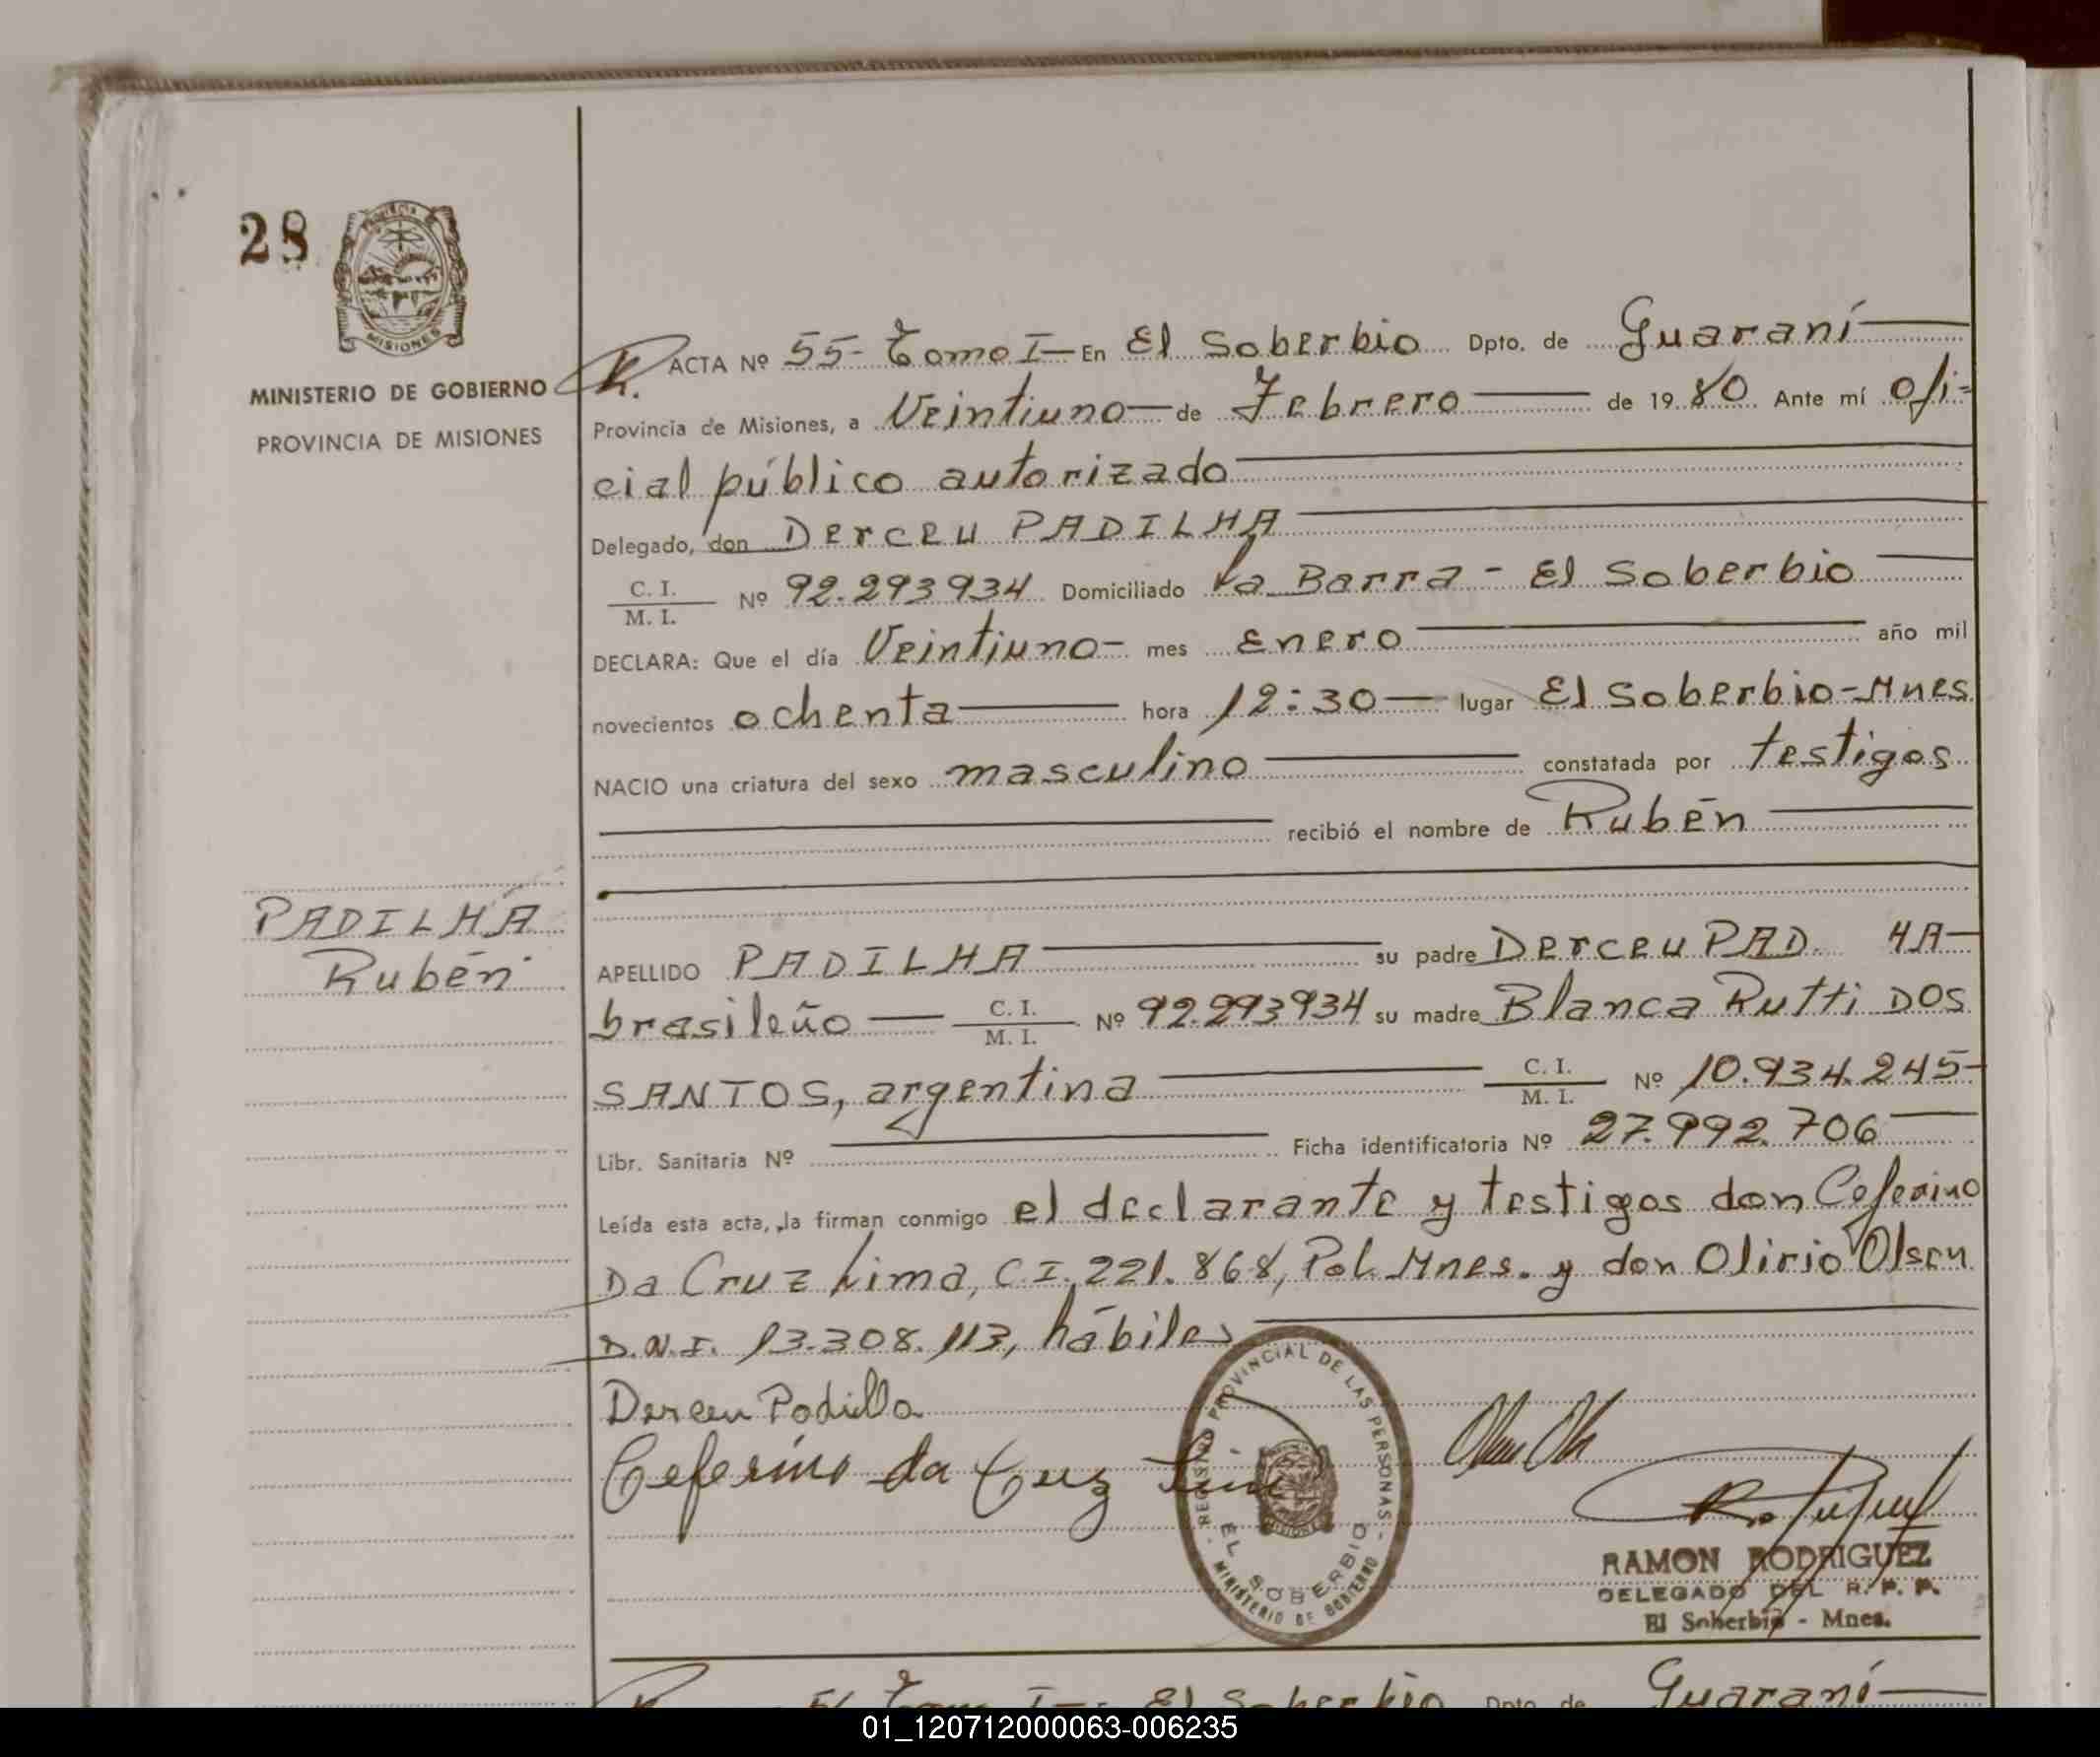 28
MISIONES
MINISTERIO DE GOBIERNO
PROVINCIA DE MISIONES
PADILHA
Rubén
ACTA Nº 55- Tomo I- En El Soberbio Dpto. de Guaraní
Provincia de Misiones, a Veintiuno de Febrero de 1980 Ante mí Ofi-
cial público autorizado
Delegado, don Derceu PADILHA
C. I.
M. I. Nº 92.293934 Domiciliado La Barra - El Soberbio
DECLARA: Que el día Veintiuno- mes Enero año mil
novecientos ochenta hora 12:30 lugar El Soberbio-Mnes
NACIO una criatura del sexo masculino constatada por testigos
recibió el nombre de Rubén
APELLIDO PADILHA su padre Derceu PAD HA
brasileño C. I. M. I. Nº 92.293934 su madre Blanca Rutti DOS
SANTOS, argentina C. I. M. I. Nº 10.934.245-
Libr. Sanitaria Nº Ficha identificatoria Nº 27.992.706
Leída esta acta, la firman conmigo el declarante y testigos don Ceferino
Da Cruz Lima, C.I. 221.868, Pol. Mnes. y don Olirio Olsen
D.N.I. 13.308.113, hábiles
Derceu Padilla
Ceferino da Cruz
REGISTRO PROVINCIAL DE LAS PERSONAS - MINISTERIO DE GOBIERNO
EL SOBERBIO
RAMON RODRIGUEZ
DELEGADO DEL R. P. P.
El Soberbio - Mnes.
Tomo I- El Soberbio Dpto de Guaraní
01_120712000063-006235